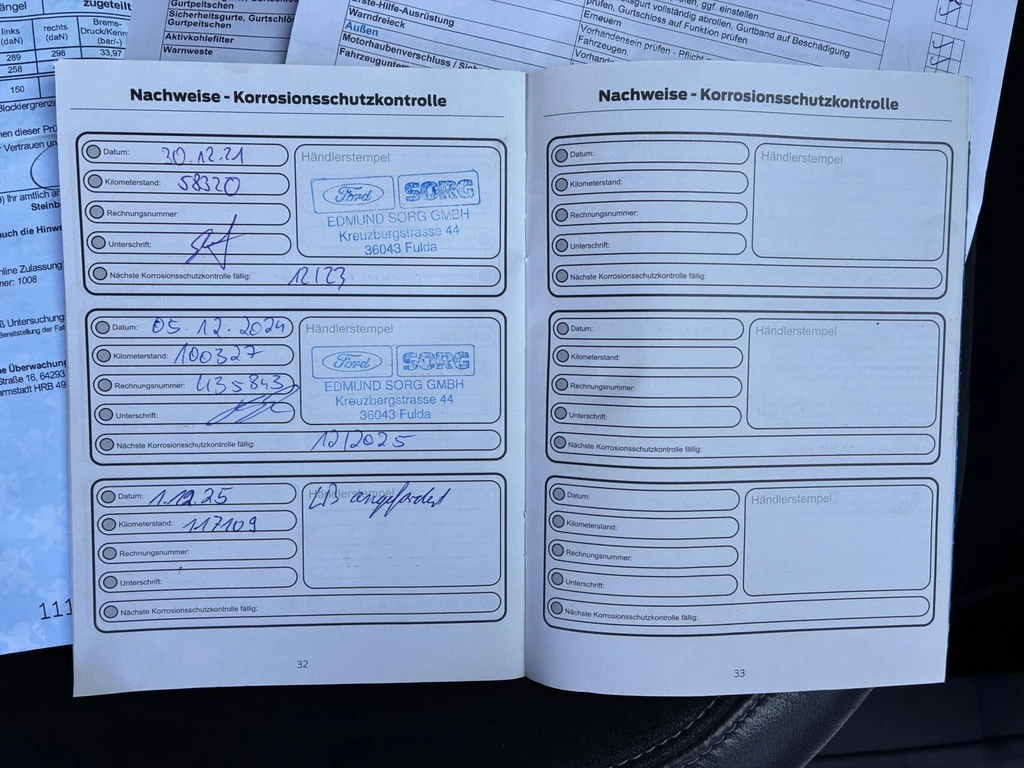 ängel
zugeteilt
links
(daN)
rechts
(daN)
Brems-
Druck/Kenn
(bar/-)
289
298
33,97
258
150
Blockiergrenze
en dieser Prü
Vertrauen un
) Ihr amtlich an
Steinb
auch die Hinwe
nline Zulassung
mer: 1008
ß Untersuchung
Bereitstellung der Fal
he Überwachun
Straße 16, 64293
armstadt HRB 49
111
Gurtpeitschen
Sicherheitsgurte, Gurtschlö
Gurtpeitschen
Aktivkohlefilter
Warnweste
Erste-Hilfe-Ausrüstung
Warndreieck
Außen
Motorhaubenverschluss / Sich
Fahrzeugunter
fen, ggf. einstellen
itsgurt vollständig abrollen, Gurtband auf Beschädigung
prüfen, Gurtschloss auf Funktion prüfen
Erneuern
Vorhandensein prüfen - Pflicht
Fahrzeugen.
Vorhand
Nachweise - Korrosionsschutzkontrolle
Datum: 30.12.21
Händlerstempel
Kilometerstand: 58320
Ford SORG
Rechnungsnummer:
EDMUND SORG GMBH
Kreuzbergstrasse 44
36043 Fulda
Unterschrift:
Nächste Korrosionsschutzkontrolle fällig: 12/23
Datum: 05.12.2024
Händlerstempel
Kilometerstand: 100327
Ford SORG
Rechnungsnummer: 435843
EDMUND SORG GMBH
Kreuzbergstrasse 44
36043 Fulda
Unterschrift:
Nächste Korrosionsschutzkontrolle fällig: 12/2025
Datum: 1.12.25
Händlerstempel
LB angefordert
Kilometerstand: 117109
Rechnungsnummer:
Unterschrift:
Nächste Korrosionsschutzkontrolle fällig:
32
Nachweise - Korrosionsschutzkontrolle
Datum:
Händlerstempel
Kilometerstand:
Rechnungsnummer:
Unterschrift:
Nächste Korrosionsschutzkontrolle fällig:
Datum:
Händlerstempel
Kilometerstand:
Rechnungsnummer:
Unterschrift:
Nächste Korrosionsschutzkontrolle fällig:
Datum:
Händlerstempel
Kilometerstand:
Rechnungsnummer:
Unterschrift:
Nächste Korrosionsschutzkontrolle fällig:
33